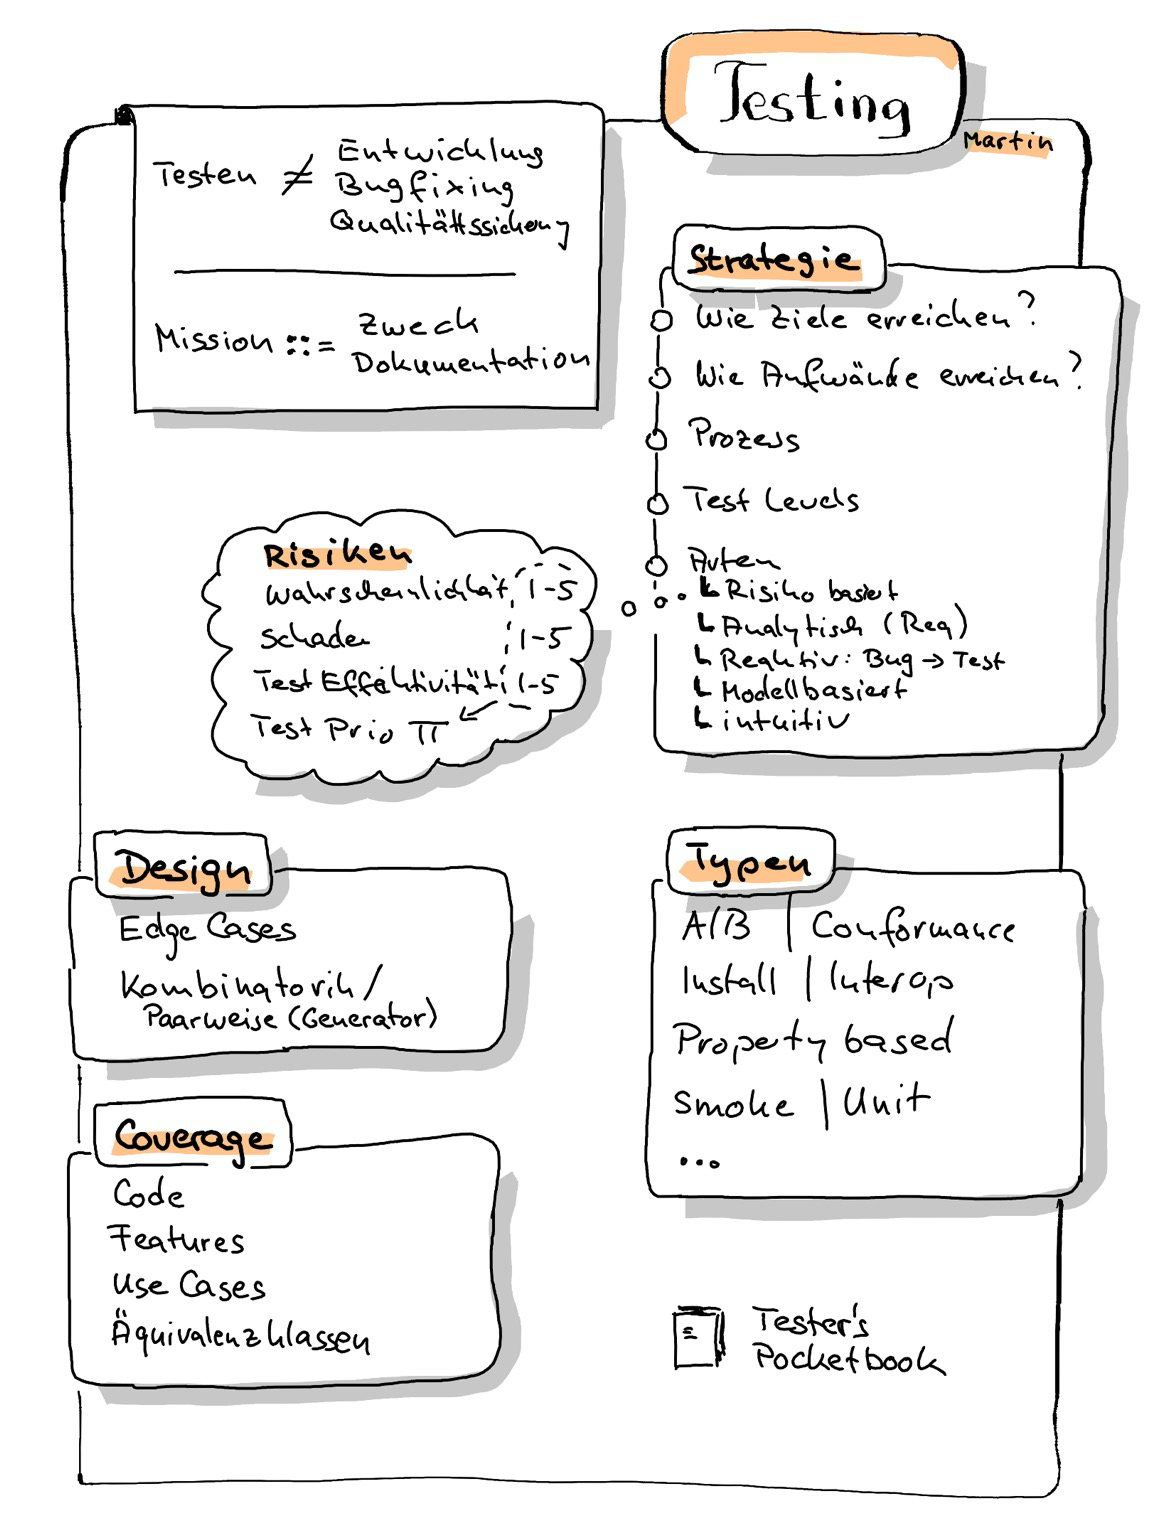 Testing
Martin
Testen ≠ Entwicklung
Bugfixing
Qualitättssicherung
Mission ::= Zweck
Dokumentation
Strategie
Wie Ziele erreichen?
Wie Aufwände erreichen?
Prozess
Test Levels
Arten
Risiko basiert
Analytisch (Req)
Reaktiv: Bug → Test
Modellbasiert
intuitiv
Risiken
Wahrscheinlichkeit 1-5
Schaden 1-5
Test Effektivität 1-5
Test Prio π
Design
Edge Cases
Kombinatorik /
Paarweise (Generator)
Typen
A/B | Conformance
Install | Interop
Property based
Smoke | Unit
...
Coverage
Code
Features
Use Cases
Äquivalenzklassen
Tester's
Pocketbook